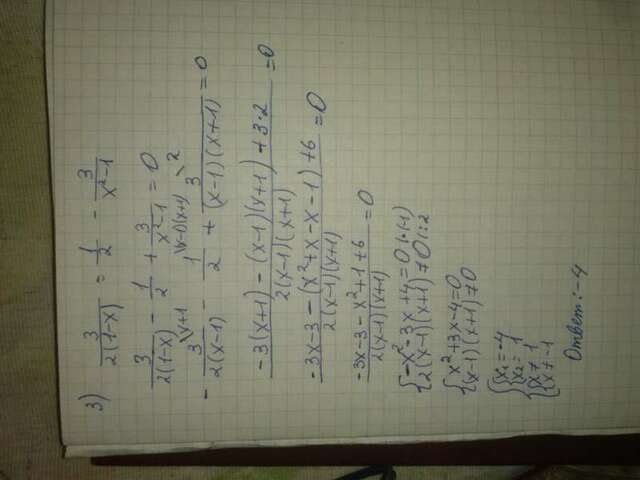 3) 3/(2(1-x)) = 1/2 - 3/(x²-1)
3/(2(1-x)) - 1/2 + 3/(x²-1) = 0
- 3\x+1/(2(x-1)) - 1\(x-1)(x+1)/2 + 3\2/((x-1)(x+1)) = 0
(-3(x+1) - (x-1)(x+1) + 3·2)/(2(x-1)(x+1)) = 0
(-3x-3-(x²+x-x-1)+6)/(2(x-1)(x+1)) = 0
(-3x-3-x²+1+6)/(2(x-1)(x+1)) = 0
{-x²-3x+4=0 |·(-1)
2(x-1)(x+1)≠0 |:2
{x²+3x-4=0
(x-1)(x+1)≠0
{{x₁=-4
x₂=1
{x≠1
x≠-1
Ответ: -4